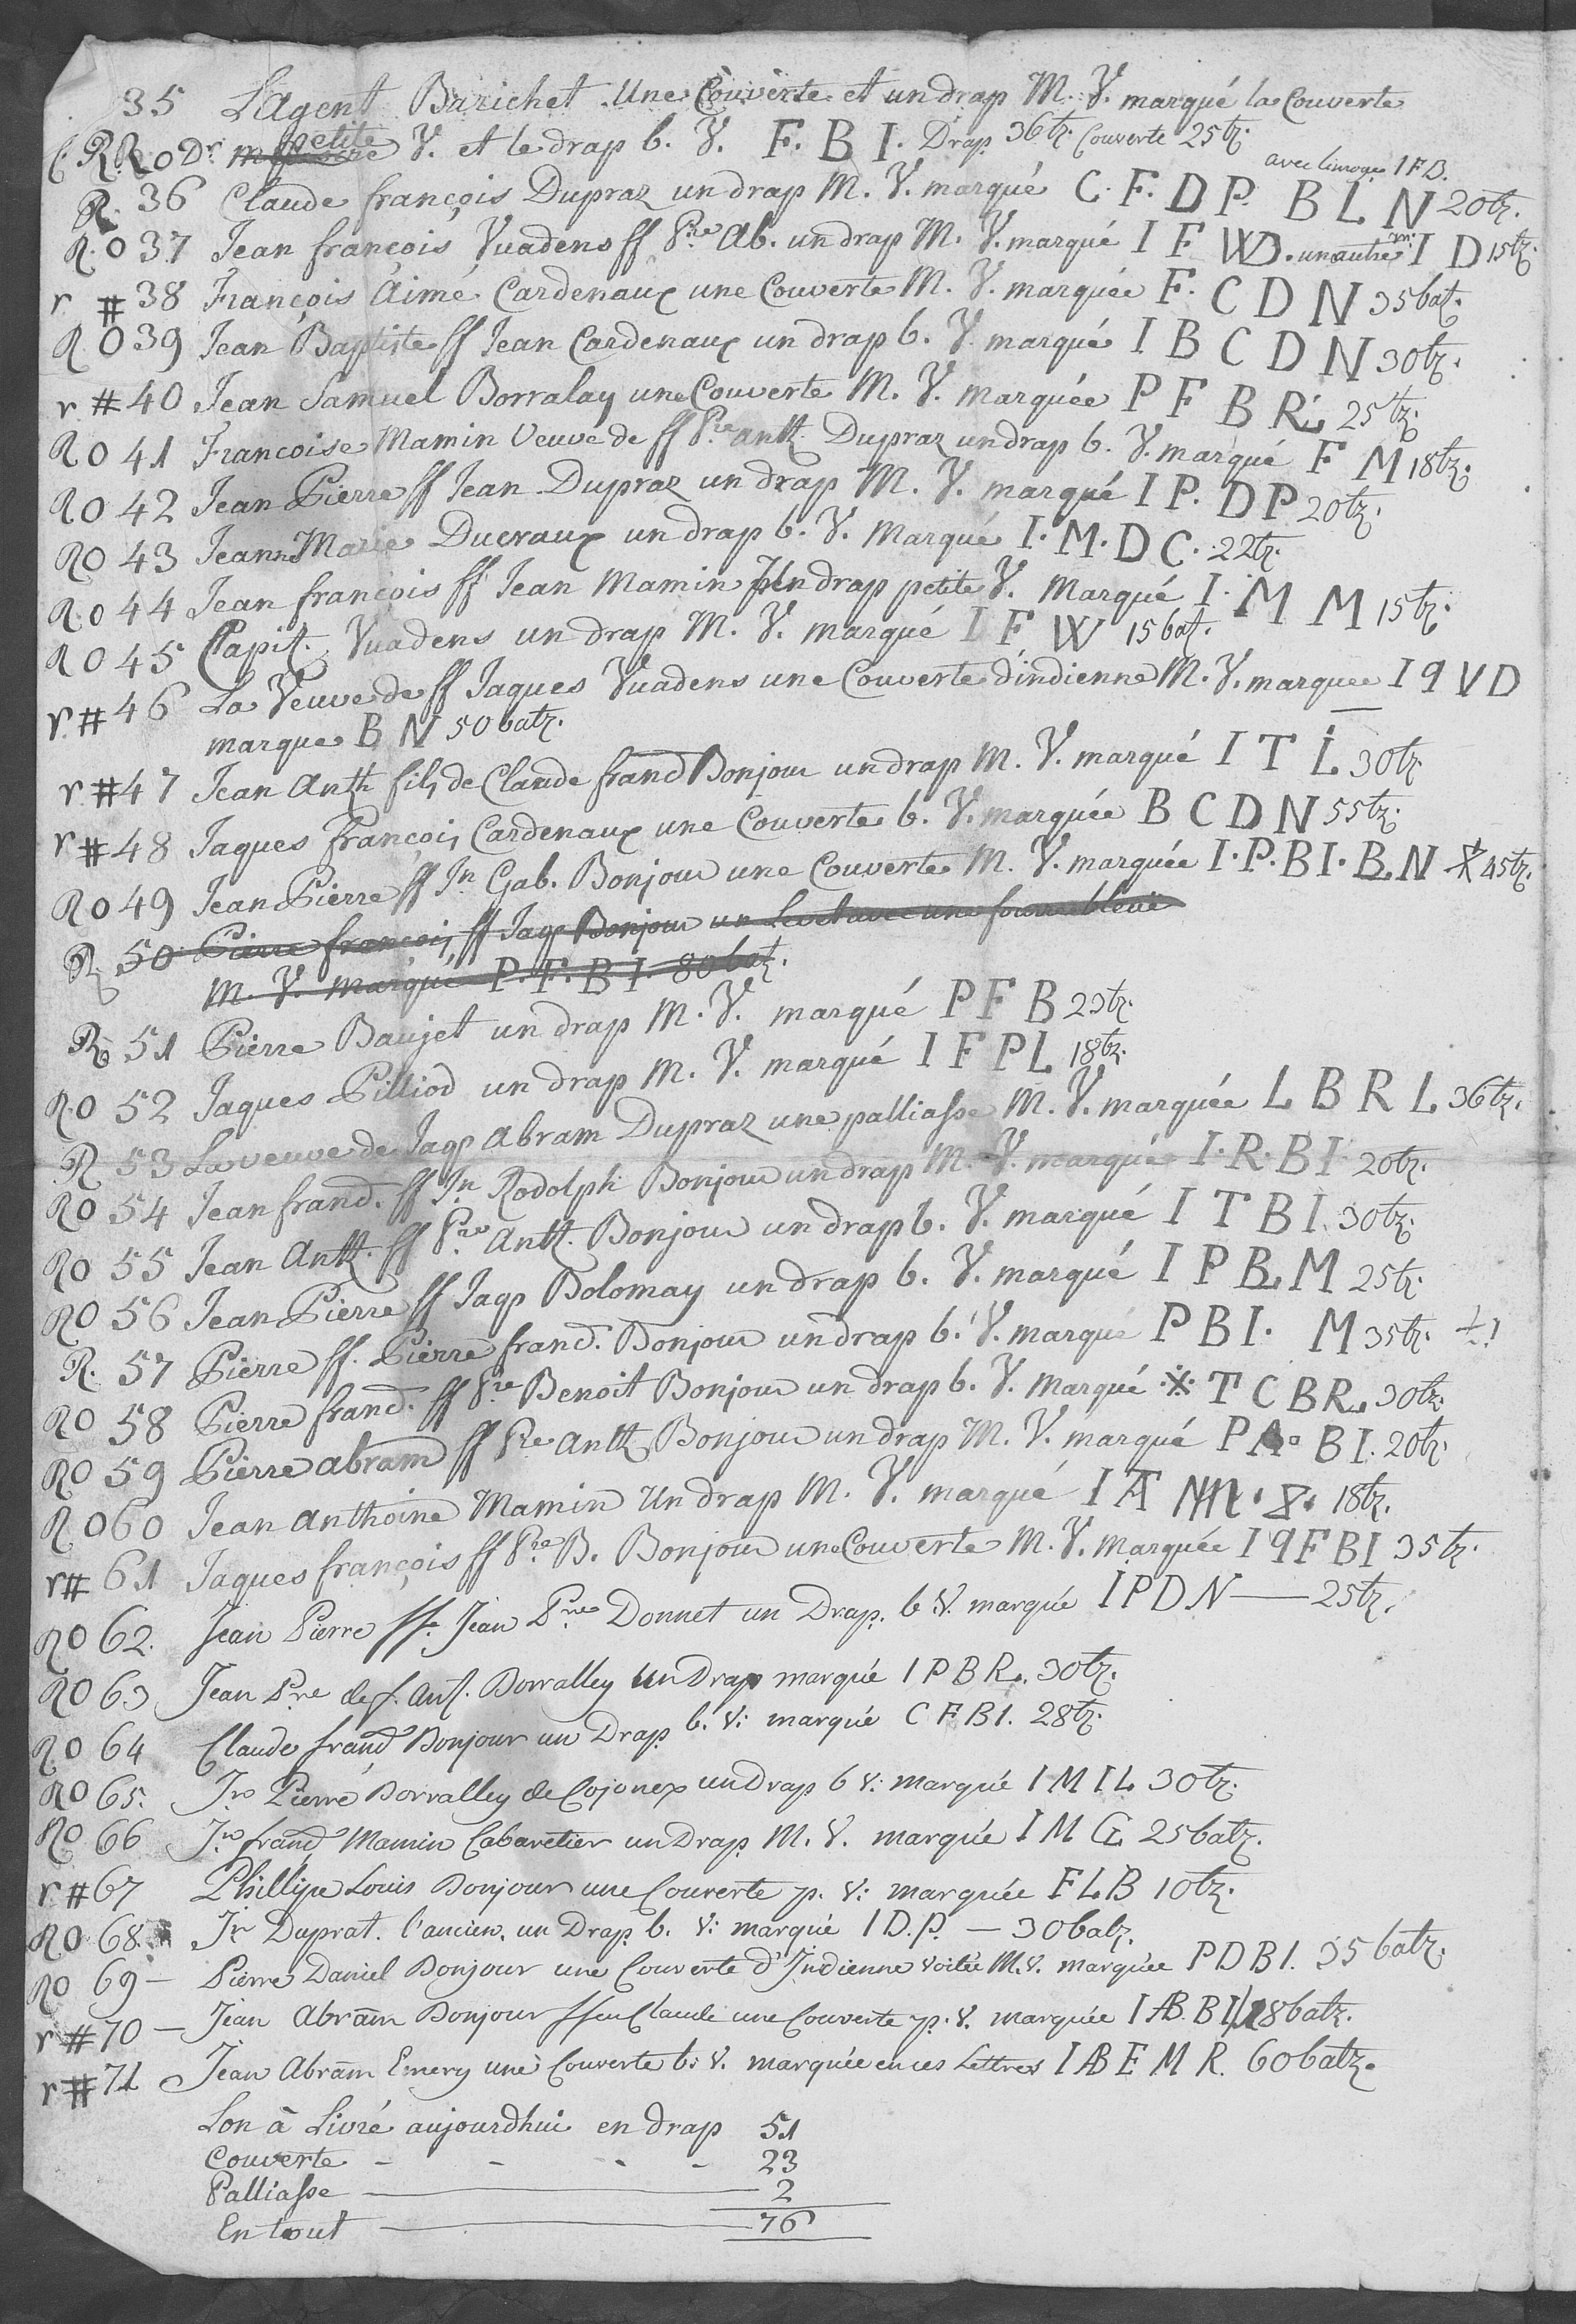 35 L'Agent Barichet Une Couverte et un drap M. V. marqué la Couverte
R. R O Dr petite V. et le drap b. V. F. B I. Drap 36 tz. Couverte 25 tz.
avec limoge I F D.
R. 36 Claude françois Dupraz un drap M. V. marqué C. F. D P. B L N 20 tz.
R. O 37 Jean françois Vuadens ff Pre Ab. un drap M. V. marqué I F VVD. un autre m: I D 15 tz.
r # 38 François Aimé Cardenaux une Couverte M. V. marquée F. C D N 35 bat.
R. O 39 Jean Baptiste ff Jean Cardenaux un drap b. V. marqué I B C D N 30 tz.
r # 40 Jean Samuel Borralay une Couverte M. V. marquée P F B R L 25 tz.
R O 41 Francoise Mamin Veuve de ff Pre anth. Dupraz un drap b. V. marqué F M 18 tz.
R O 42 Jean Pierre ff Jean Dupraz un drap M. V. marqué I P. D P 20 tz.
R O 43 Jeanne Marie Ducraux un drap b. V. Marqué I. M. D C. 22 tz.
R. O 44 Jean françois ff Jean Mamin Un drap petite V. Marqué I. M M 15 tz.
R O 45 Capit. Vuadens un drap M. V. marqué I F W 15 bat.
r # 46 La Veuve de ff Jaques Vuadens une Couverte d'indienne M. V. marquee I q V D
marque B N 50 batz.
r # 47 Jean Anth fils de Claude francd Bonjour un drap M. V. marqué I T L 30 tz
r # 48 Jaques François Cardenaux une Couverte b. V. marquée B C D N 55 tz.
R O 49 Jean Pierre ff Jn Gab. Bonjour une Couverte M. V. marquée I. P. B I. B. N 45 tz.
R 50 Pierre françois ff Jaqs Bonjour un
M. V. marqué P. F. B I. 80 bat.
R. 51 Pierre Baujet un drap M. V. marqué P F B 23 tz.
R. O 52 Jaques Pilliod un drap M. V. marqué I F P L 18 tz.
R 53 La veuve de Jaqs Abram Dupraz une palliasse M. V. marquée L B R L 36 tz.
R O 54 Jean francd. ff Jn Rodolph Bonjour un drap M. V. marqué I. R. B I 20 tz.
R O 55 Jean Anth. ff Pre Anth. Bonjour un drap b. V. marqué I T B I. 30 tz.
R O 56 Jean Pierre ff Jaqs Bolomay un drap b. V. marqué I P B. M 25 tz.
R. 57 Pierre ff. Pierre francd. Bonjour un drap b. V. marqué P B I. M 35 tz.
R O 58 Pierre francd. ff Pre Benoit Bonjour un drap b. V. Marqué ※ T C B R. 30 tz.
R O 59 Pierre abram ff Pre Anth Bonjour un drap M. V. marqué P A. B I. 20 tz.
R O 60 Jean Anthoine Mamin Un drap M. V. marqué I A M. 8. 18 tz.
r # 61 Jaques françois ff Pre B. Bonjour une Couverte M. V. Marquée I q F B I 35 tz.
R O 62. Jean Pierre ff. Jean Pre Donnet un Drap. b V. marqué I P D N — 25 tz.
R O 63 Jean Pre de f. Ant. Borralley Un Drap marqué I P B R. 30 tz.
R O 64 Claude francd Bonjour un Drap b. V: marqué C F B I. 28 tz.
R O 65. Jn Pierre Borralley de Cojonex un Drap b V: marqué I M I L 30 tz.
R O 66 Jn francd Mamin Cabaretier un Drap M. V. marqué I M 25 batz.
r # 67 Phillipe Louis Bonjour une Couverte p. V: marquée F L B 10 tz.
R O 68. Jn Duprat. l'ancien. un Drap b. V: marqué I D. P. — 30 batz.
R O 69 — Pierre Daniel Bonjour une Couverte d'Indienne M. V. marquée P D B I. 35 batz.
r # 70 — Jean Abram Bonjour ffeu Claude une Couverte p. V. marquée I AB. B I 18 batz.
r # 71 Jean Abram Emery une Couverte b: V. marquée en ces Lettres I AB E M R. 60 batz.
Lon à Livré aujourdhui en drap 51
Couverte - - - - 23
Palliasse — 2
En tout — 76